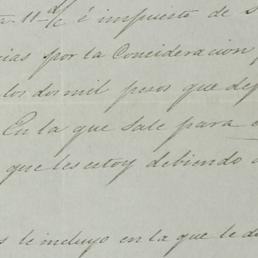 11 d/c é impuesto de s
ias por la Concideración
los dos mil pesos que dep
En la que sale para
que les estoy debiendo
le incluyo en la que le d